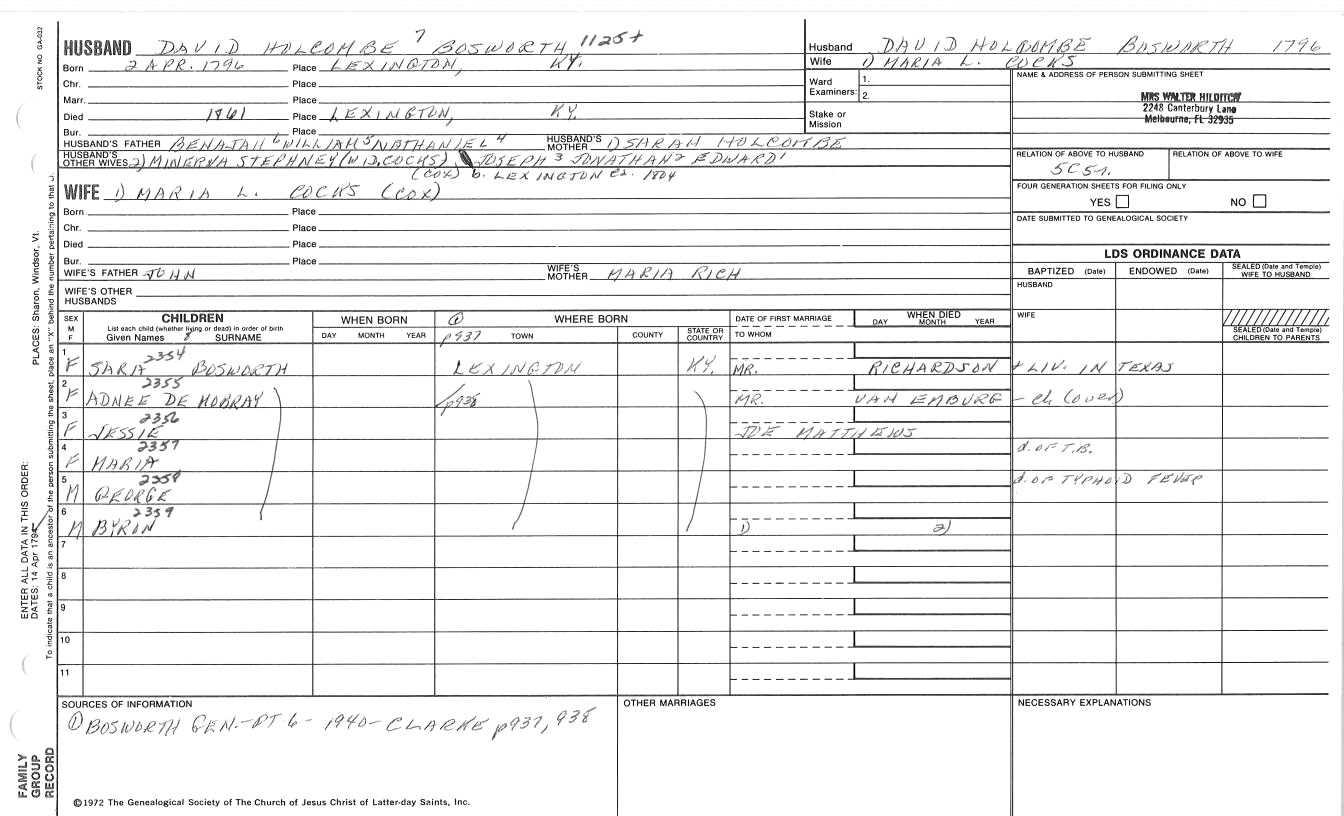 STOCK NO GA-032
HUSBAND DAVID HOLCOMBE 7 BOSWORTH 1125+
Born 2 APR. 1796 Place LEXINGTON, KY.
Chr. Place
Marr. Place
Died 1861 Place LEXINGTON, KY.
Bur. Place
HUSBAND'S FATHER BENAJAH 6 WILLIAM 5 NATHANIEL 4 HUSBAND'S MOTHER 1) SARAH HOLCOMBE
HUSBAND'S OTHER WIVES 2) MINERVA STEPHNEY (WID, COCKS) JOSEPH 3 JONATHAN 2 EDWARD 1
(COX) b. LEXINGTON Ca. 1804
WIFE 1) MARIA L. COCKS (COX)
Born Place
Chr. Place
Died Place
Bur. Place
WIFE'S FATHER JOHN WIFE'S MOTHER MARIA RICH
WIFE'S OTHER HUSBANDS
Husband DAVID HOLCOMBE BOSWORTH 1796
Wife 1) MARIA L. COCKS
Ward Examiners: 1. 2.
Stake or Mission
NAME & ADDRESS OF PERSON SUBMITTING SHEET
MRS WALTER HILDITCH
2248 Canterbury Lane
Melbourne, FL 32935
RELATION OF ABOVE TO HUSBAND RELATION OF ABOVE TO WIFE
5C5r.
FOUR GENERATION SHEETS FOR FILING ONLY
YES NO
DATE SUBMITTED TO GENEALOGICAL SOCIETY
LDS ORDINANCE DATA
BAPTIZED (Date) ENDOWED (Date) SEALED (Date and Temple) WIFE TO HUSBAND
HUSBAND
WIFE
SEALED (Date and Temple) CHILDREN TO PARENTS
SEX M F CHILDREN WHEN BORN 1 WHERE BORN DATE OF FIRST MARRIAGE WHEN DIED
List each child (whether living or dead) in order of birth
Given Names 8 SURNAME DAY MONTH YEAR p937 TOWN COUNTY STATE OR COUNTRY TO WHOM DAY MONTH YEAR
1 2354
F SARIA BOSWORTH LEXINGTON KY. MR. RICHARDSON + LIV. IN TEXAS
2 2355
F ADNEE DE MOBRAY p938 MR. VAN EMBURG - Ch (over)
3 2356
F JESSIE JOE MATTHEWS
4 2357
F MARIA d. OF T.B.
5 2358
M GEORGE d. OF TYPHOID FEVER
6 2359
M BYRON 1) 2)
7
8
9
10
11
SOURCES OF INFORMATION OTHER MARRIAGES NECESSARY EXPLANATIONS
1 BOSWORTH GEN.-PT 6 - 1940 - CLARKE p937, 938
©1972 The Genealogical Society of The Church of Jesus Christ of Latter-day Saints, Inc.
FAMILY GROUP RECORD
ENTER ALL DATA IN THIS ORDER:
DATES: 14 Apr 1794
PLACES: Sharon, Windsor, Vt.
To indicate that a child is an ancestor of the person submitting the sheet, place an "X" behind the number pertaining to that